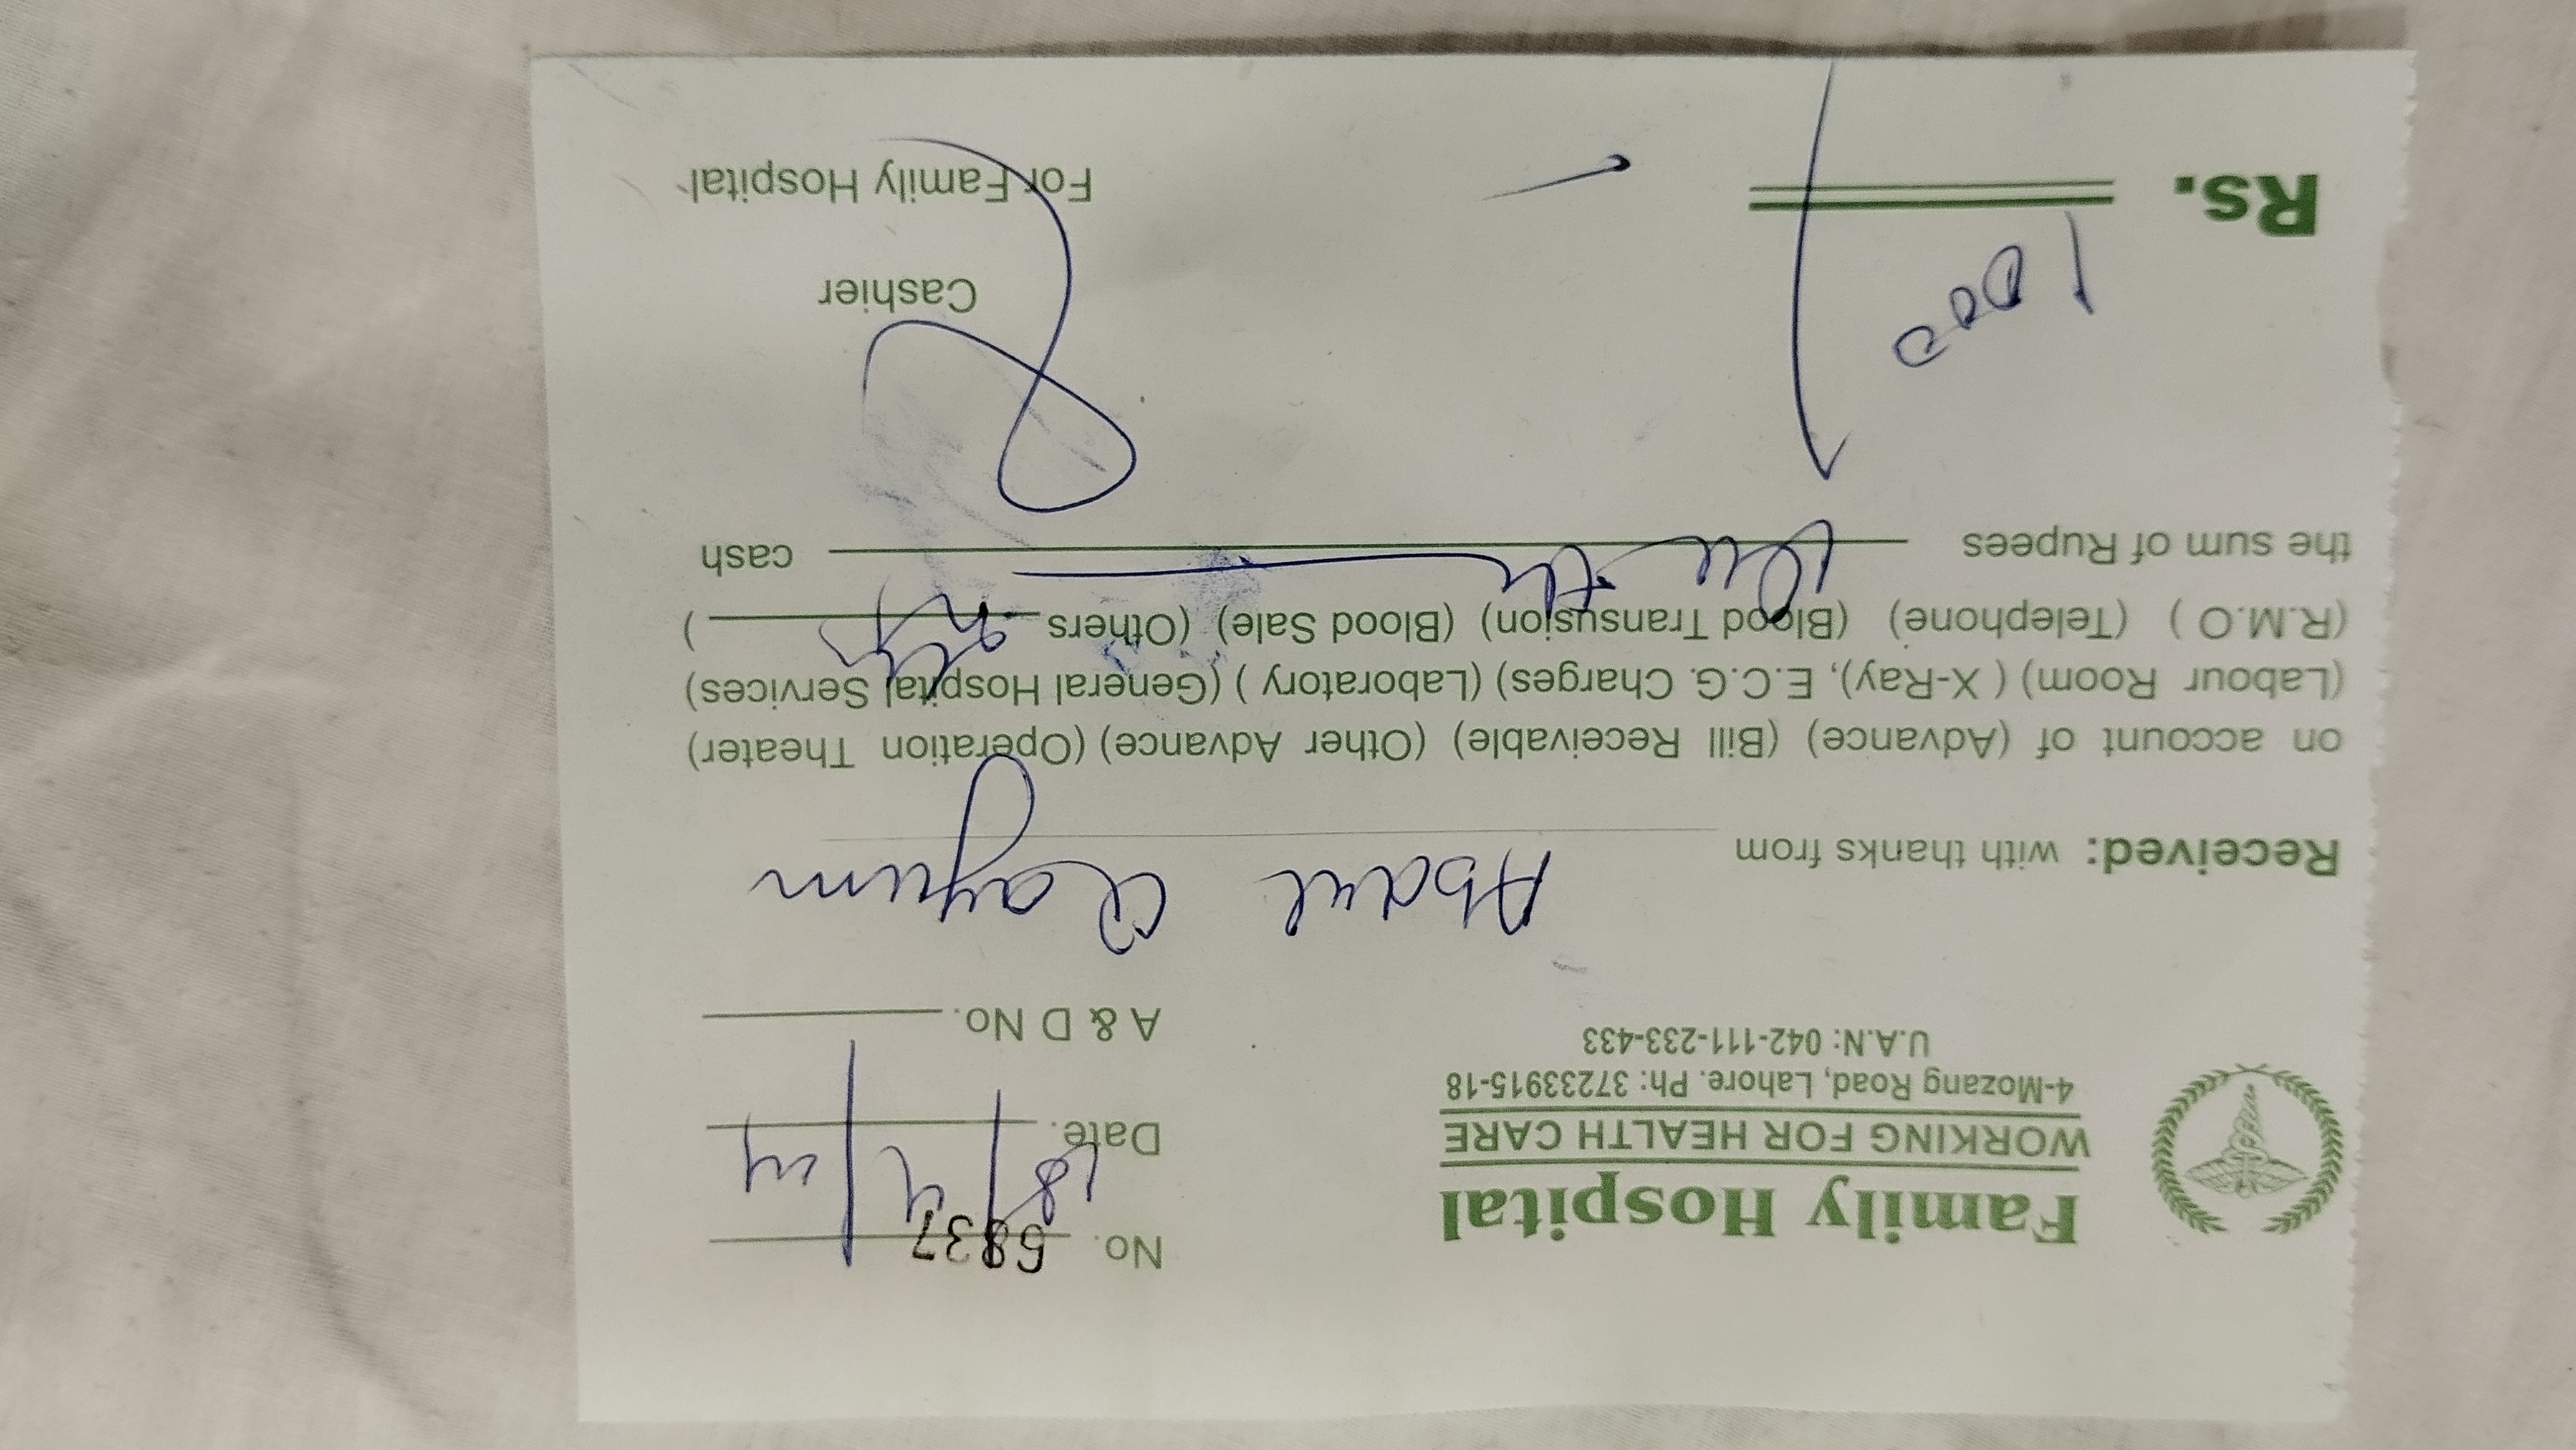 Family Hospital
WORKING FOR HEALTH CARE
4-Mozang Road, Lahore. Ph: 37233915-18
U.A.N: 042-111-233-433
No. 5837
Date. 18/9/24
A & D No.
Received: with thanks from Abdul Qayum
on account of (Advance) (Bill Receivable) (Other Advance) (Operation Theater)
(Labour Room) ( X-Ray), E.C.G. Charges) (Laboratory ) (General Hospital Services)
(R.M.O ) (Telephone) (Blood Transusion) (Blood Sale) (Others )
the sum of Rupees cash
Cashier
Rs. 1000/-
For Family Hospital